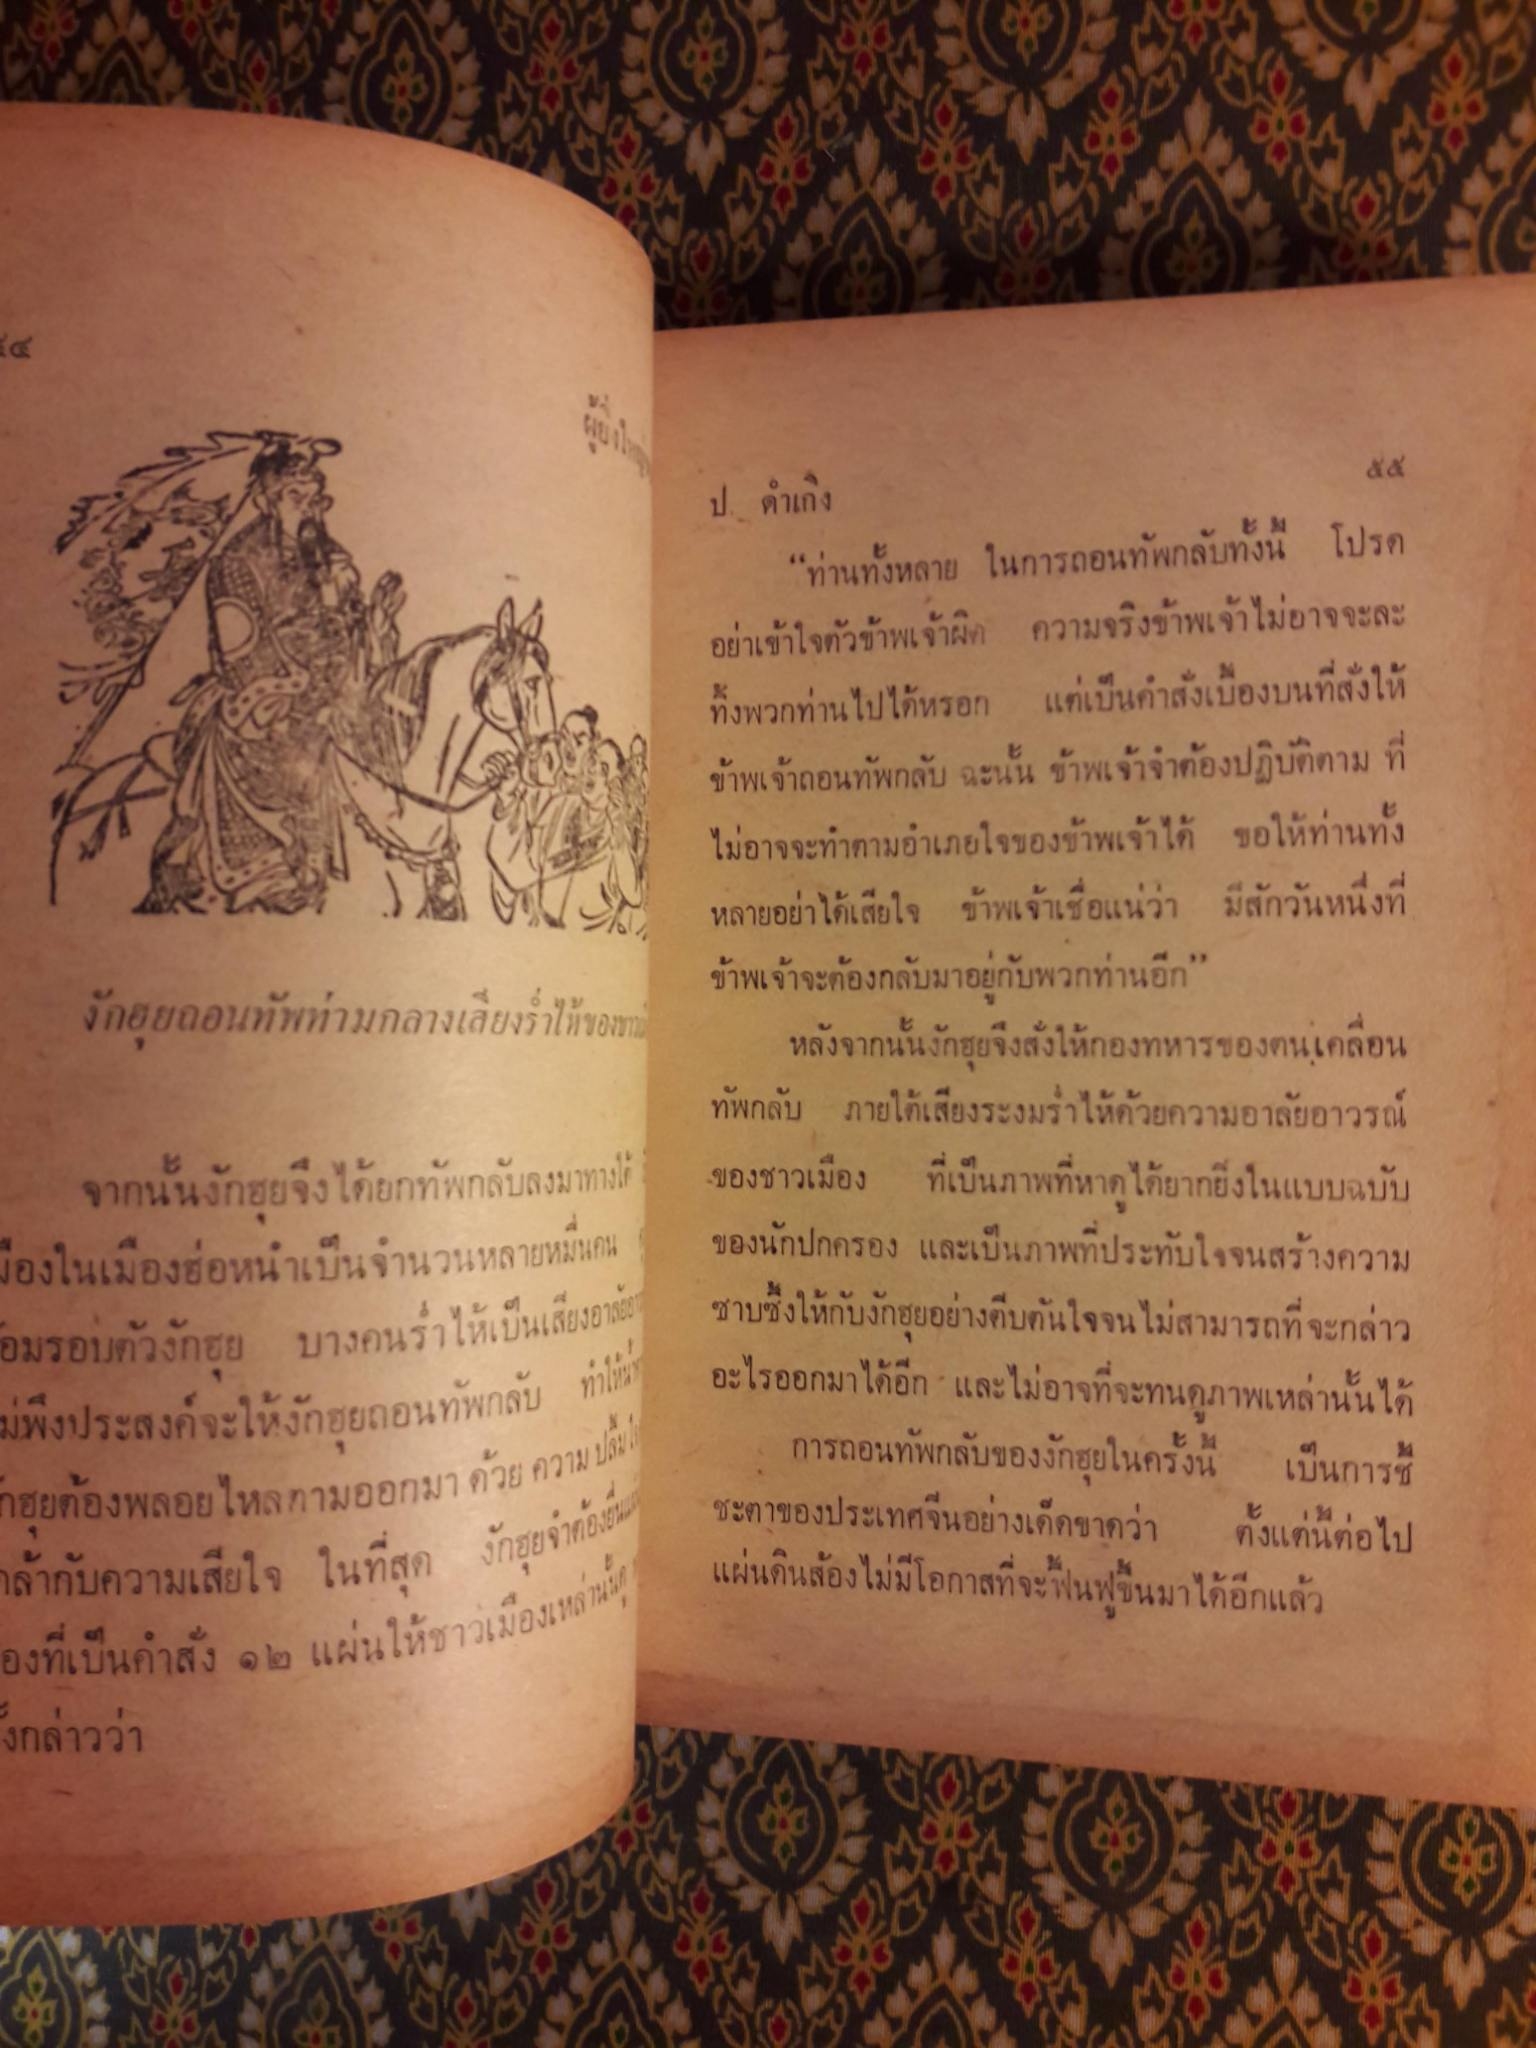 ๕๔
งักฮุยถอนทัพท่ามกลางเสียงร่ำไห้ของ
จากนั้นงักฮุยจึงได้ยกทัพกลับลงมาทางใต้
เมืองฮ่อหนำเป็นจำนวนหลายหมื่นคน
รอบตัวงักฮุย บางคนร่ำไห้เป็นเสียงอาลัย
ประสงค์จะให้งักฮุยถอนทัพกลับ ทำให้
ต้องพลอยไหลตามออกมา ด้วย ความ
กับความเสียใจ ในที่สุด งักฮุยจำต้อง
ที่เป็นคำสั่ง ๑๒ แผ่นให้ชาวเมืองเหล่านั้นดู
กล่าวว่า
ป. ดำเกิง ๕๕
“ท่านทั้งหลาย ในการถอนทัพกลับทั้งนี้ โปรด
อย่าเข้าใจตัวข้าพเจ้าผิด ความจริงข้าพเจ้าไม่อาจจะละ
ทิ้งพวกท่านไปได้หรอก แต่เป็นคำสั่งเบื้องบนที่สั่งให้
ข้าพเจ้าถอนทัพกลับ ฉะนั้น ข้าพเจ้าจำต้องปฏิบัติตาม ที่
ไม่อาจจะทำตามอำเภอใจของข้าพเจ้าได้ ขอให้ท่านทั้ง
หลายอย่าได้เสียใจ ข้าพเจ้าเชื่อแน่ว่า มีสักวันหนึ่งที่
ข้าพเจ้าจะต้องกลับมาอยู่กับพวกท่านอีก”
หลังจากนั้นงักฮุยจึงสั่งให้กองทหารของตนเคลื่อน
ทัพกลับ ภายใต้เสียงระงมร่ำไห้ด้วยความอาลัยอาวรณ์
ของชาวเมือง ที่เป็นภาพที่หาดูได้ยากยิ่งในแบบฉบับ
ของนักปกครอง และเป็นภาพที่ประทับใจจนสร้างความ
ซาบซึ้งให้กับงักฮุยอย่างตีบตันใจจนไม่สามารถที่จะกล่าว
อะไรออกมาได้อีก และไม่อาจที่จะทนดูภาพเหล่านั้นได้
การถอนทัพกลับของงักฮุยในครั้งนี้ เป็นการชี้
ชะตาของประเทศจีนอย่างเด็ดขาดว่า ตั้งแต่นี้ต่อไป
แผ่นดินส้องไม่มีโอกาสที่จะฟื้นฟูขึ้นมาได้อีกแล้ว